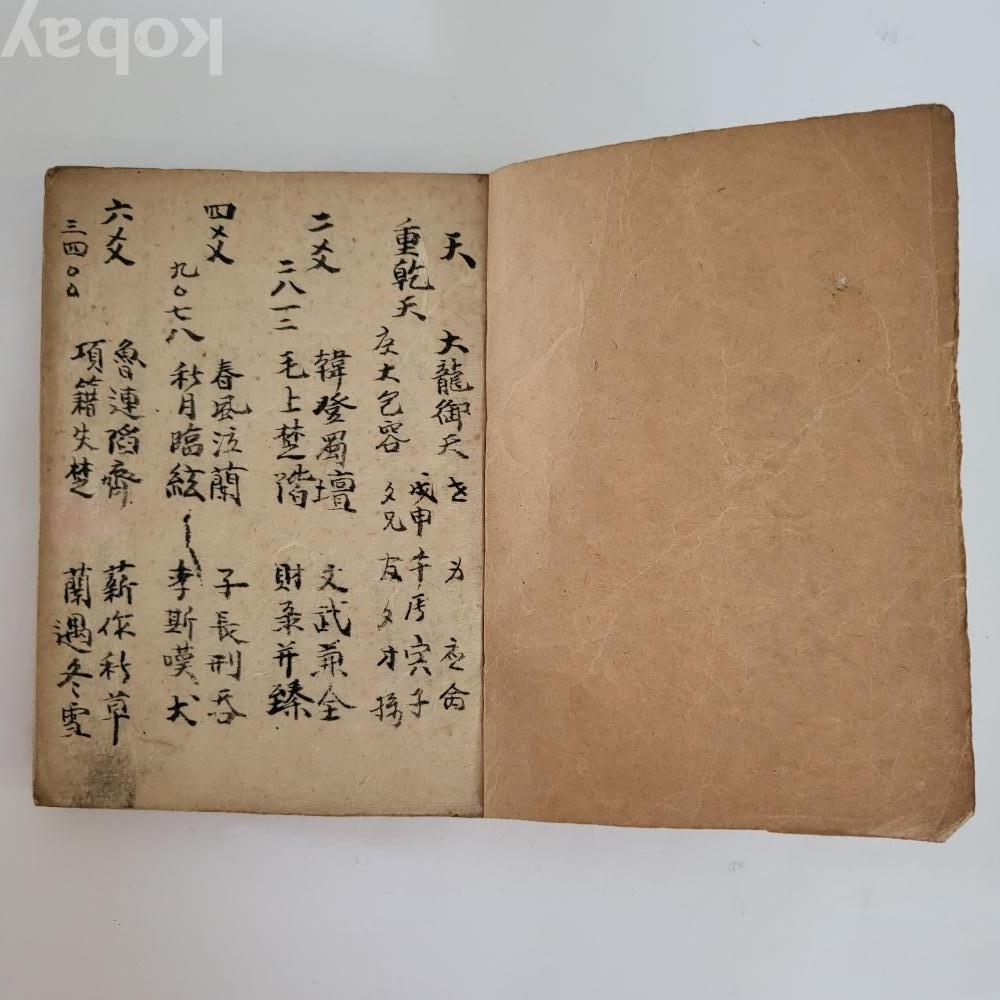 天
大龍御天
重乾天
大包容
戌申午辰寅子
父兄
父才孫
二爻
二八一二
韓登蜀壇
毛上楚階
文武兼全
財并臻
四爻
九〇七八
春風泣蘭
秋月臨絃
子長刑吞
李斯嘆犬
六爻
三四〇〇
魯連蹈齊
項籍失楚
薪作秋草
蘭遇冬雪
kobay